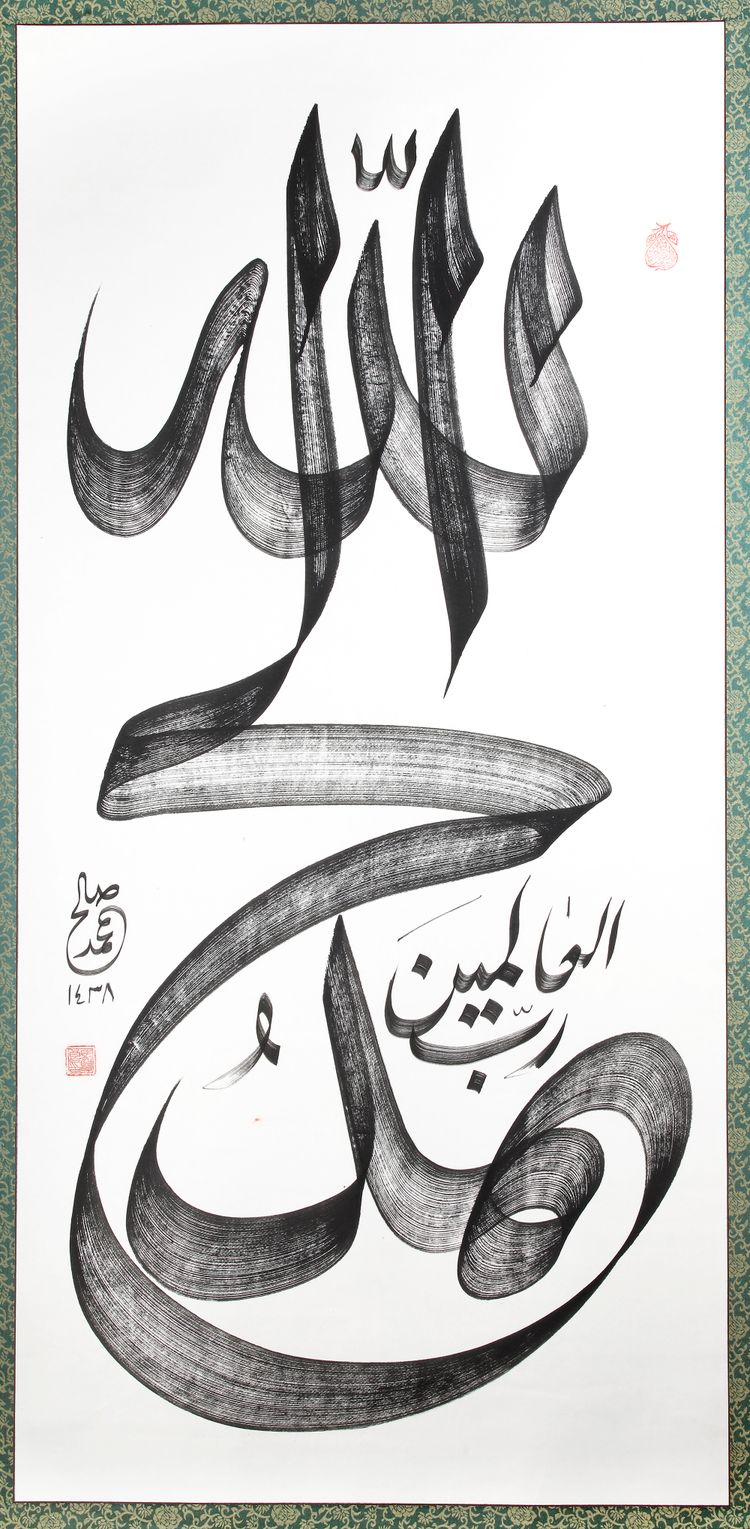 الحمدُ
للّه
ربّ
العالمينَ
محمد صالح
١٤٣٨